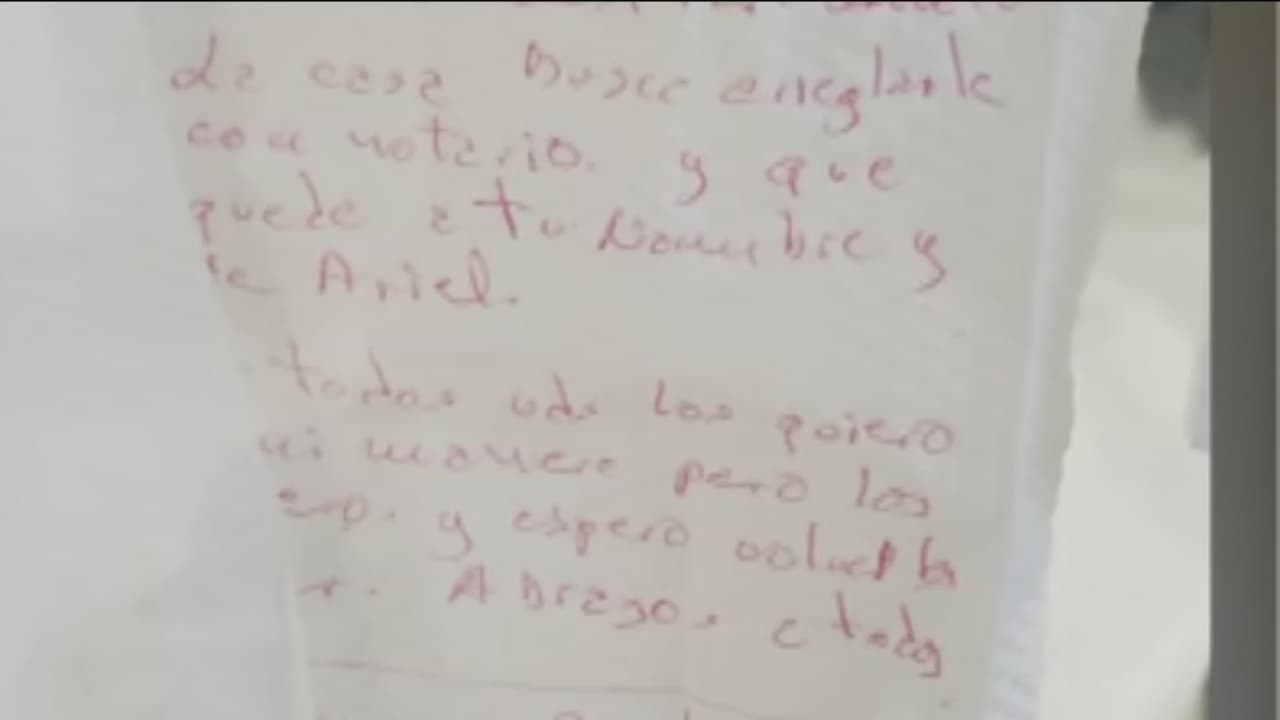 La casa Busca arreglarle
con notario. y que
quede a tu Nombre y
de Ariel.
todos uds los quiero
mi manera pero los
y espero volver
Abrazos a todos